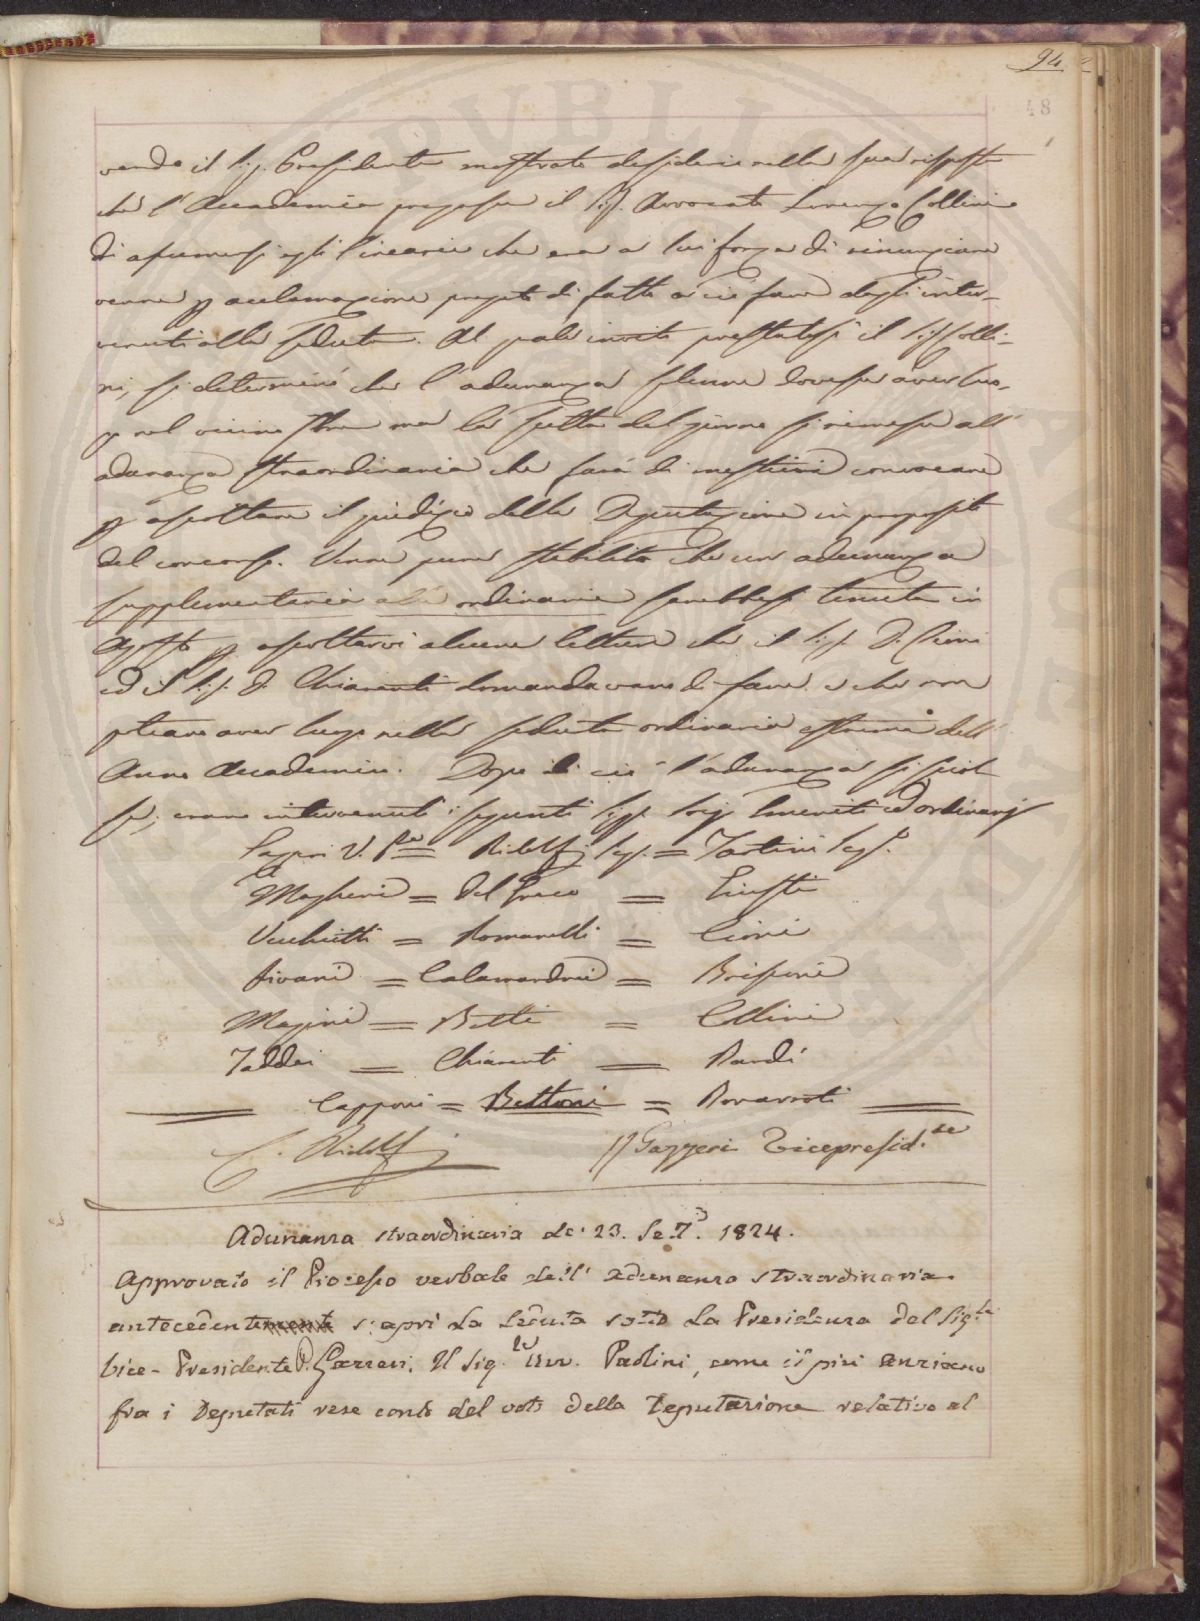 94
48
vendo il Sig. Presidente mostrato desiderio nella sua risposta
che l'Accademia pregasse il Sig. Avvocato Lorenzo Collini
di assumersi gli incarichi che era a lui forza di rinunziare
venne p acclamazione pregato di fatto a ciò fare dagli inter-
venuti alla seduta. Al quale invito prestatosi il Sig. Colli-
ni, si determinò che l'adunanza solenne dovesse aver luo-
go nel vicino 7bre ma la scelta del giorno si rimesse all'
adunanza straordinaria che sarà di mestieri convocare
p ascoltare il giudizio della Deputazione in proposito
del concorso. Venne pure stabilito che un adunanza
supplementaria alle ordinarie sarebbesi tenuta in
Agosto p ascoltarvi alcune letture che il Sig. D. Cioni
ed il Sig. D. Chiarenti domandavano di fare e che non
poteano aver luogo nella seduta ordinaria estrema dell'
Anno Accademico. Dopo di ciò l'adunanza si sciol
se; erano intervenuti i seguenti Sigg. Socj Emeriti ed ordinarj
Gazzeri V. Pte = Ridolfi Seg. = Tartini Seg.
Magheri = Del Greco = Giusti
Vecchietti = Romanelli = Cioni
Calamandrei =
Magini = Betti = Collini
Taddei = Chiarenti = Nardi
Capponi = Bettoni =
C. Ridolfi Gazzeri Vicepresid.te
Adunanza straordinaria de' 23. Se.7. 1824.
Approvato il Processo verbale dell' adunanza straordinaria
antecedentemente s'aprì la Seduta sotto la Presidenza del Sig.re
Vice-Presidente P. Gazzeri. Il Sig.re Avv. Paolini, come il più anziano
fra i Deputati rese conto del voto della Deputazione relativo al